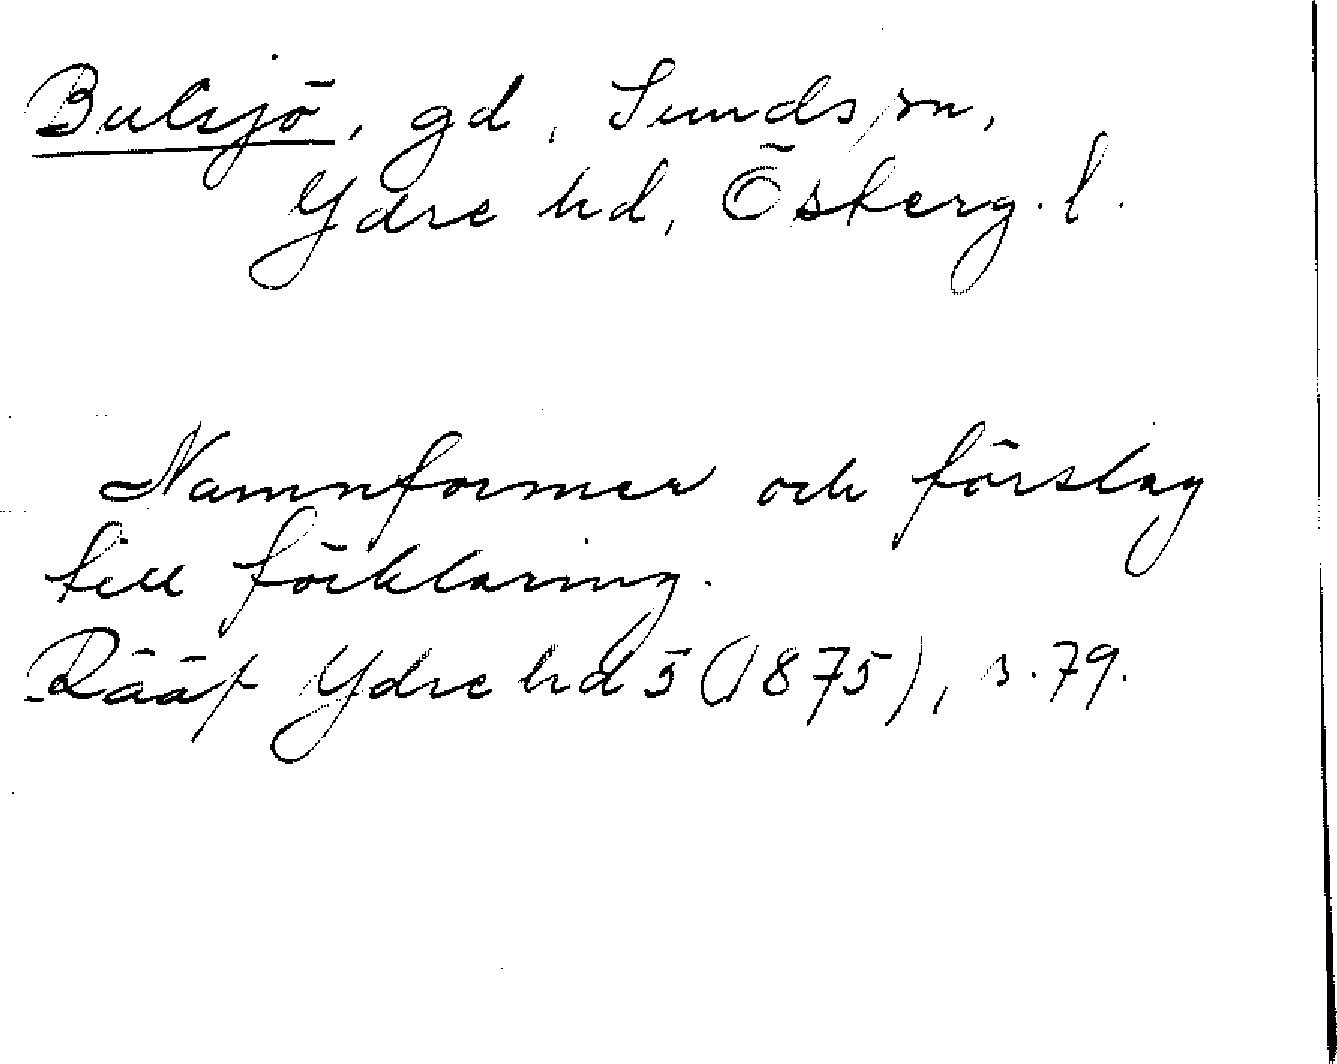 Bulsjö, gd, Sunds sn,
Ydre hd, Österg. l.
Namnformer och förslag
till förklaring.
Rääf Ydre hd 5 (1875), s. 79.